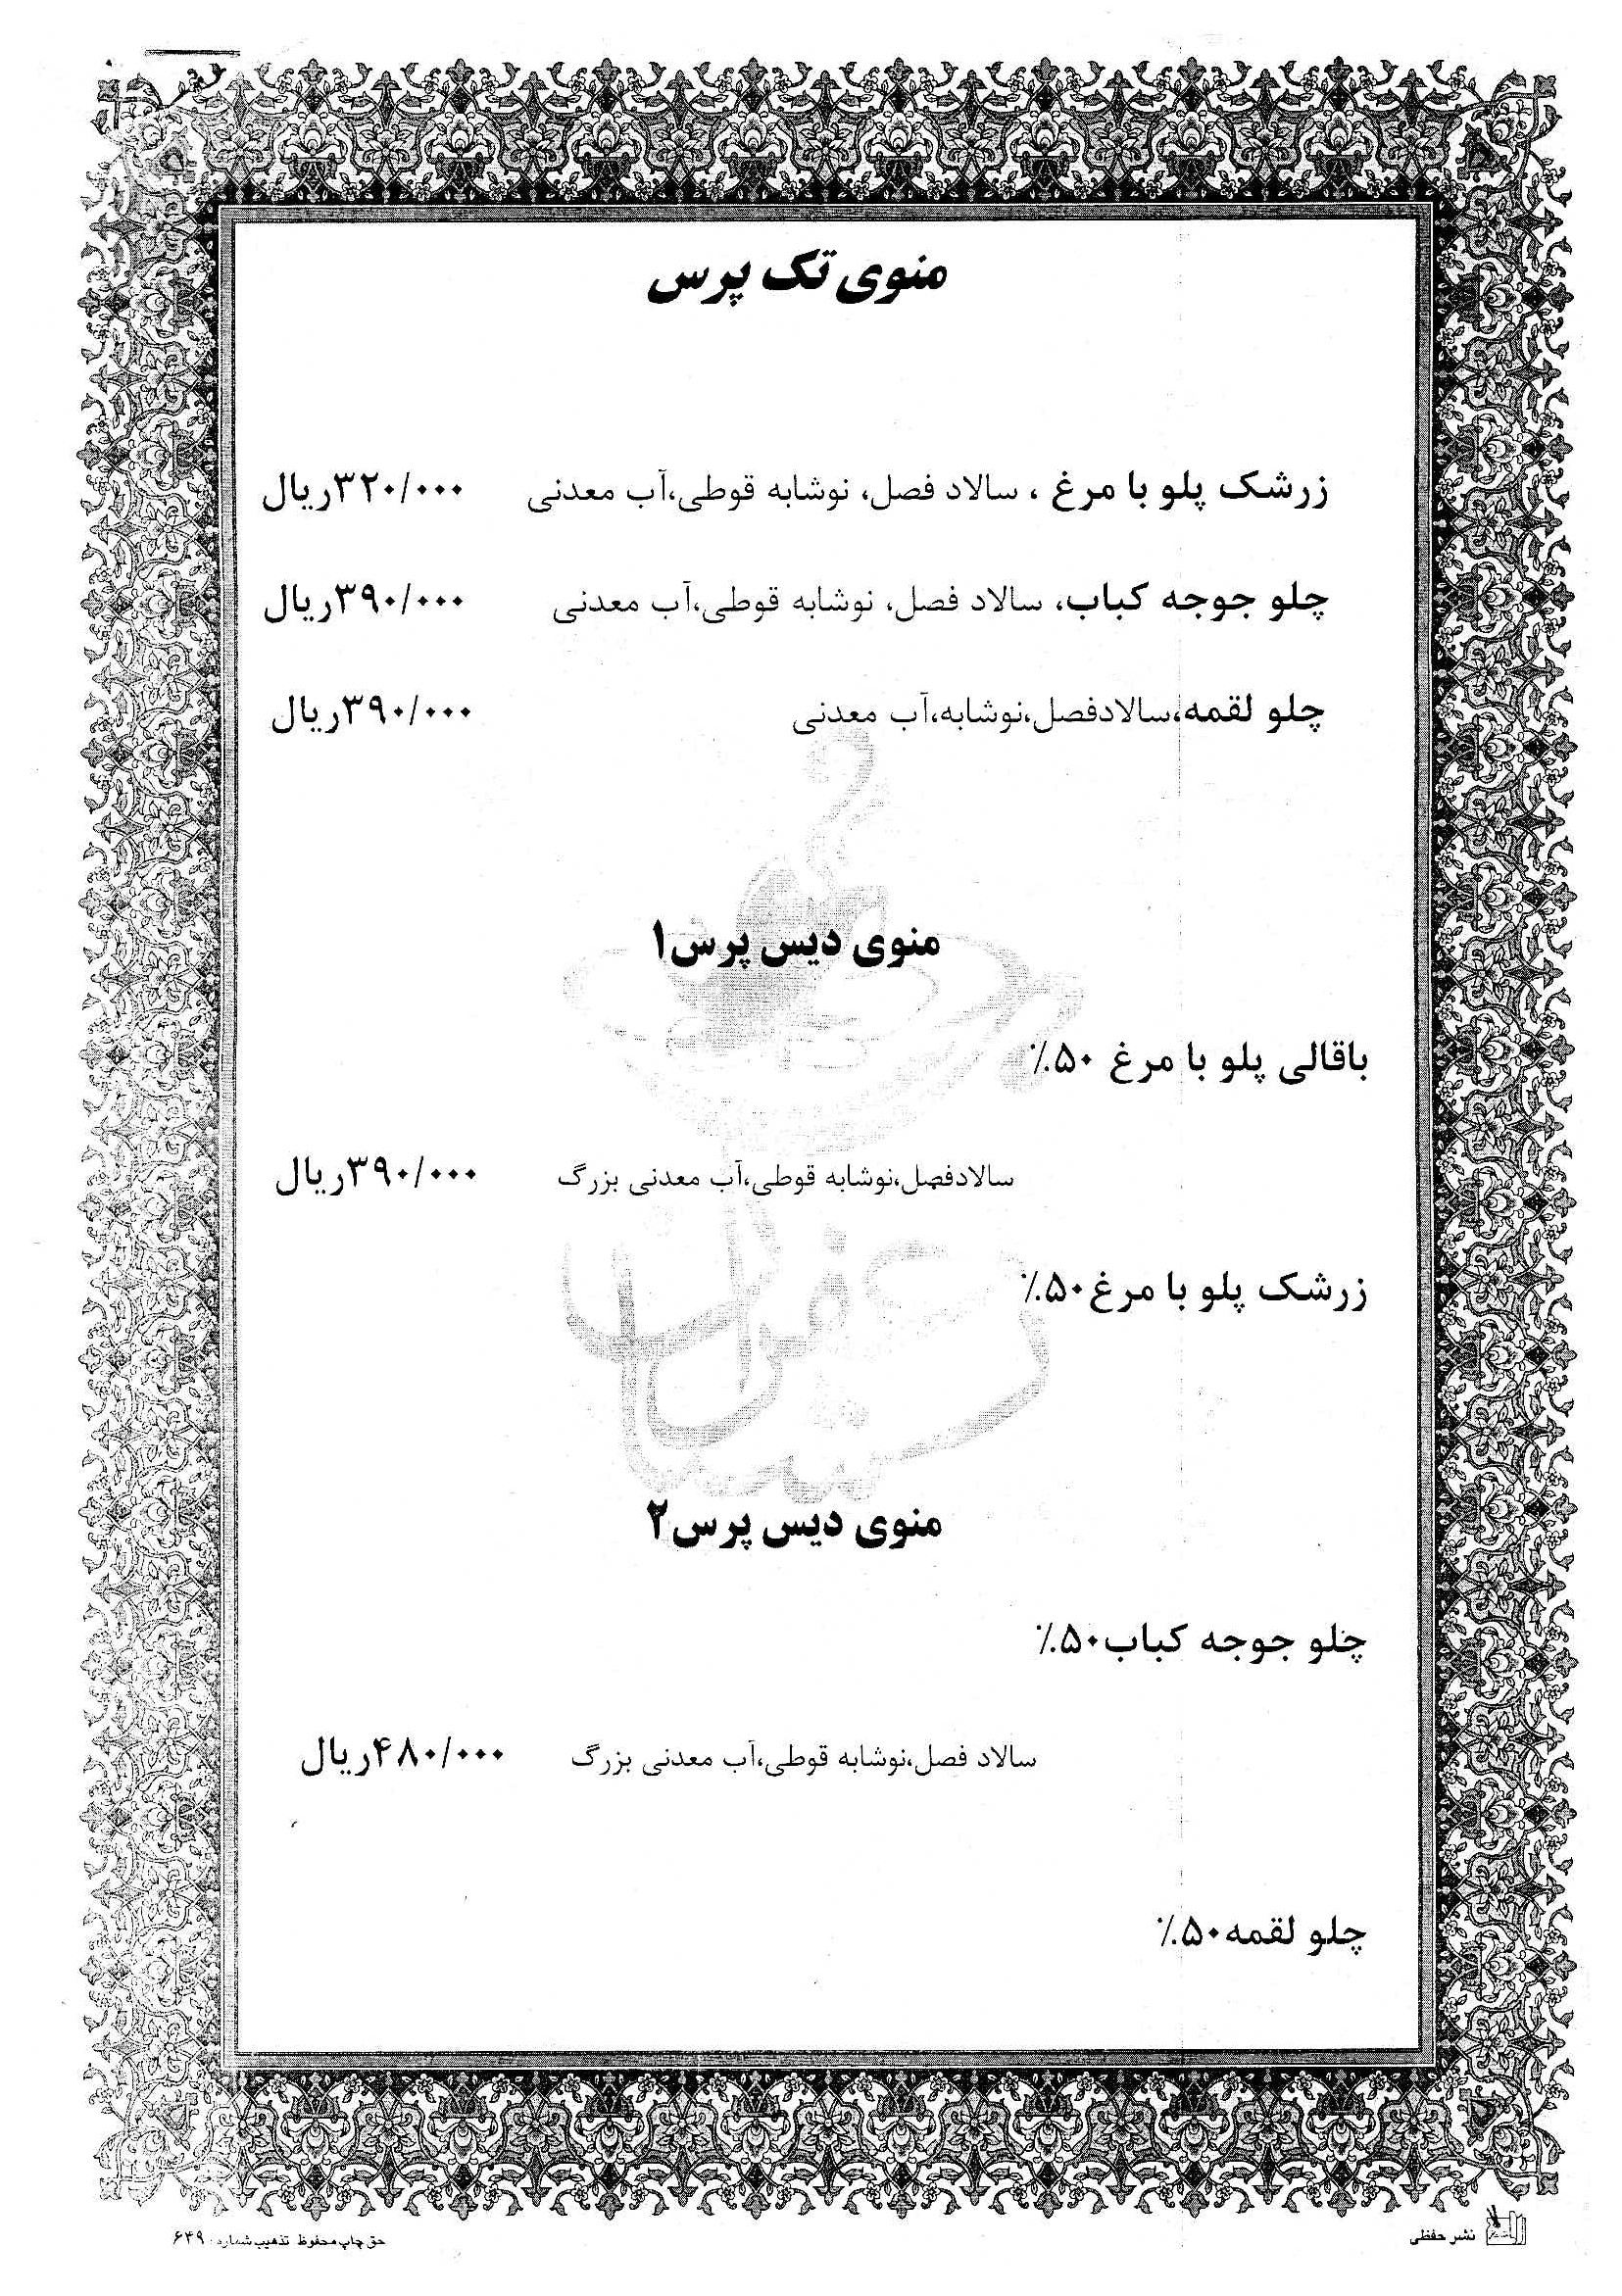 منوی تک پرس
زرشک پلو با مرغ ، سالاد فصل، نوشابه قوطی،آب معدنی ۳۲۰/۰۰۰ریال
چلو جوجه کباب، سالاد فصل، نوشابه قوطی،آب معدنی ۳۹۰/۰۰۰ریال
چلو لقمه،سالادفصل،نوشابه،آب معدنی ۳۹۰/۰۰۰ریال
منوی دیس پرس۱
باقالی پلو با مرغ ۵۰٪
سالادفصل،نوشابه قوطی،آب معدنی بزرگ ۳۹۰/۰۰۰ریال
زرشک پلو با مرغ۵۰٪
منوی دیس پرس۲
چلو جوجه کباب۵۰٪
سالاد فصل،نوشابه قوطی،آب معدنی بزرگ ۴۸۰/۰۰۰ریال
چلو لقمه۵۰٪
نشر حفظی
حق چاپ محفوظ تذهیب شماره ۶۴۹